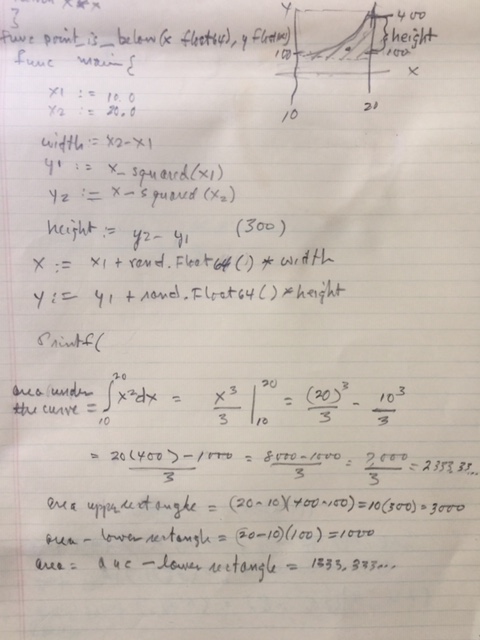 return x * x
}
func point_is_below(x float64, y float64)
func main {
x1 := 10.0
x2 := 20.0
width := x2-x1
y1 := x_squared(x1)
y2 := x-squared(x2)
height := y2- y1 (300)
x := x1 + rand.Float64() * width
y := y1 + rand.Float64() * height
Printf(
Y
400
height
100
100
X
10
20
area under the curve = ∫₁₀²⁰ x²dx = x³/3 |₁₀²⁰ = (20)³/3 - 10³/3
= 20(400) - 1000/3 = 8000-1000/3 = 7000/3 = 2333.33...
area upper rectangle = (20-10)(400-100)=10(300)=3000
area - lower rectangle = (20-10)(100)=1000
area = auc - lower rectangle = 1333.333...